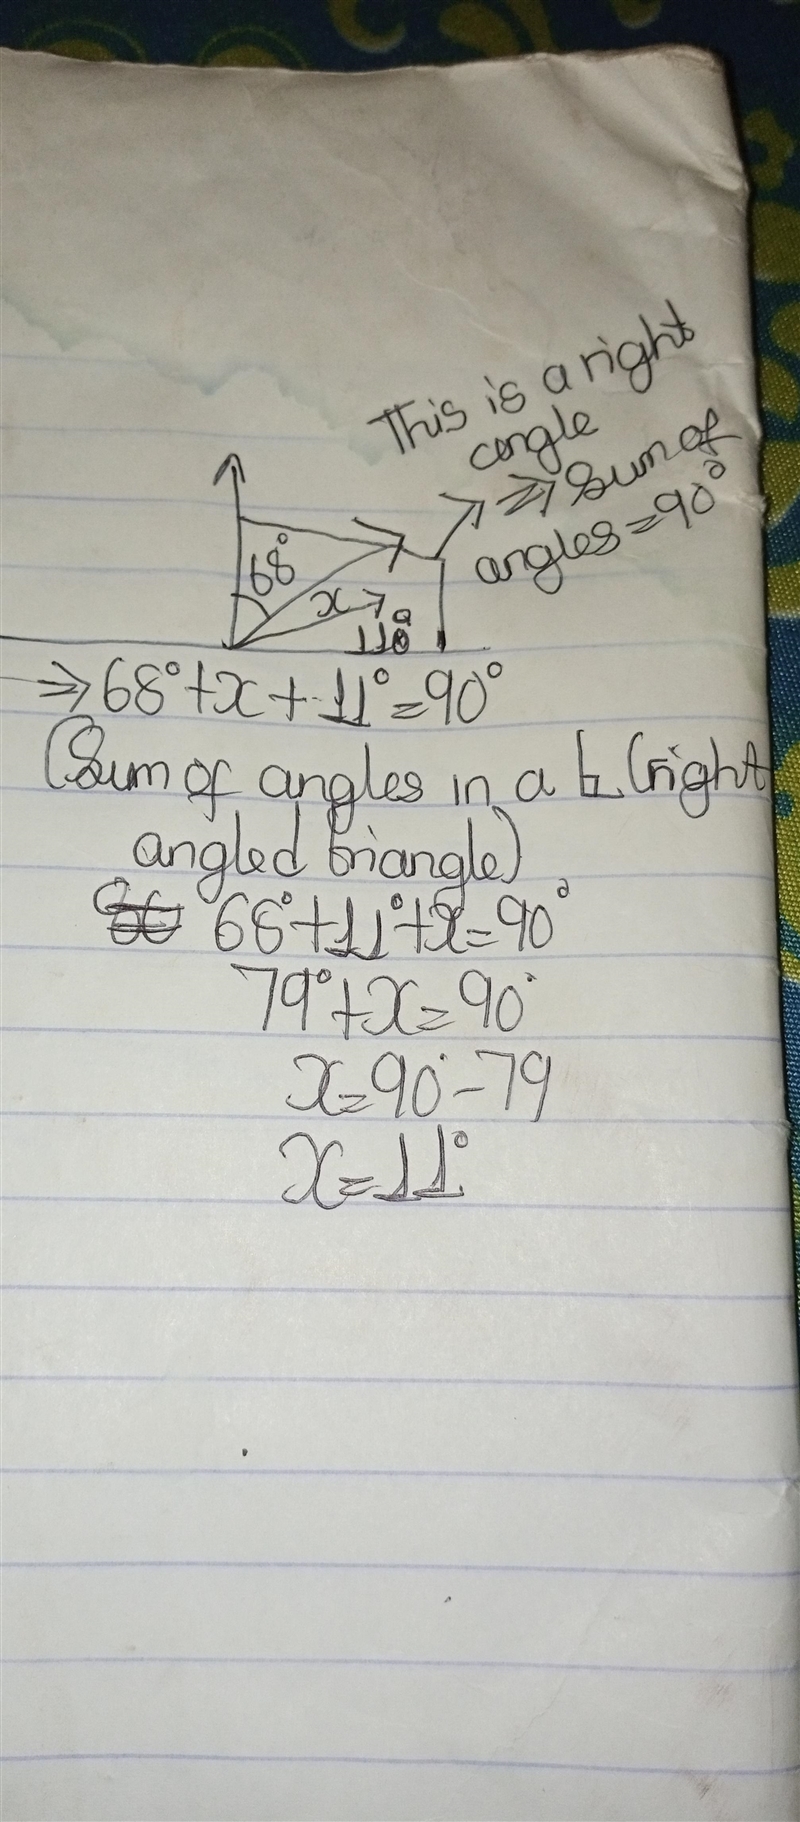 This is a right
angle
⇒ Sum of
angles = 90°
68°
x
11°
⇒ 68° + x + 11° = 90°
(Sum of angles in a ∟ (right
angled triangle)
68° + 11° + x = 90°
79° + x = 90°
x = 90° - 79
x = 11°